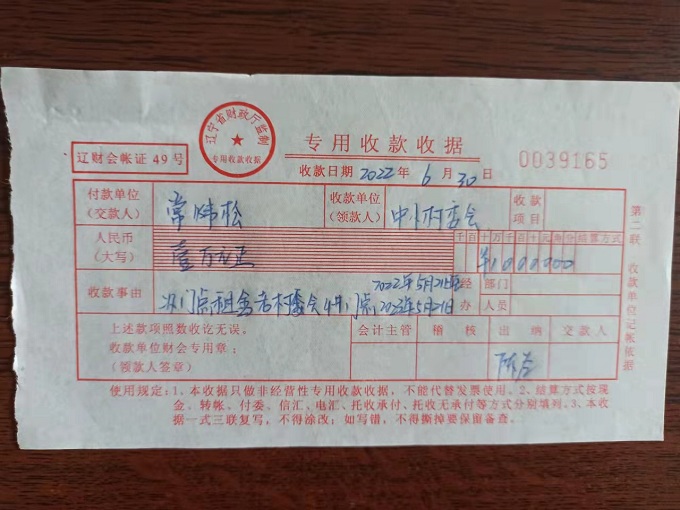 辽宁省财政厅监制
专用收款收据
辽财会帐证49号
专用收款收据
收款日期 2022年 6月 30日
0039165
付款单位
(交款人)
常炜松
收款单位
(领款人)
中小村委会
收款
项目
人民币
(大写)
壹万元正
千百十万千百十元角分
结算方式
¥1000000
收款事由
2022年5月21日至
2023年5月21日
经办
部门
人员
上述款项照数收讫无误。
收款单位财会专用章:
(领款人签章)
会计主管
稽核
出纳
交款人
第二联 收款单位记帐依据
使用规定:1、本收据只做非经营性专用收款收据,不能代替发票使用。2、结算方式按现
金、转帐、付委、信汇、电汇、托收承付、托收无承付等方式分别填列。3、本收
据一式三联复写,不得涂改;如写错,不得撕掉要保留备查。